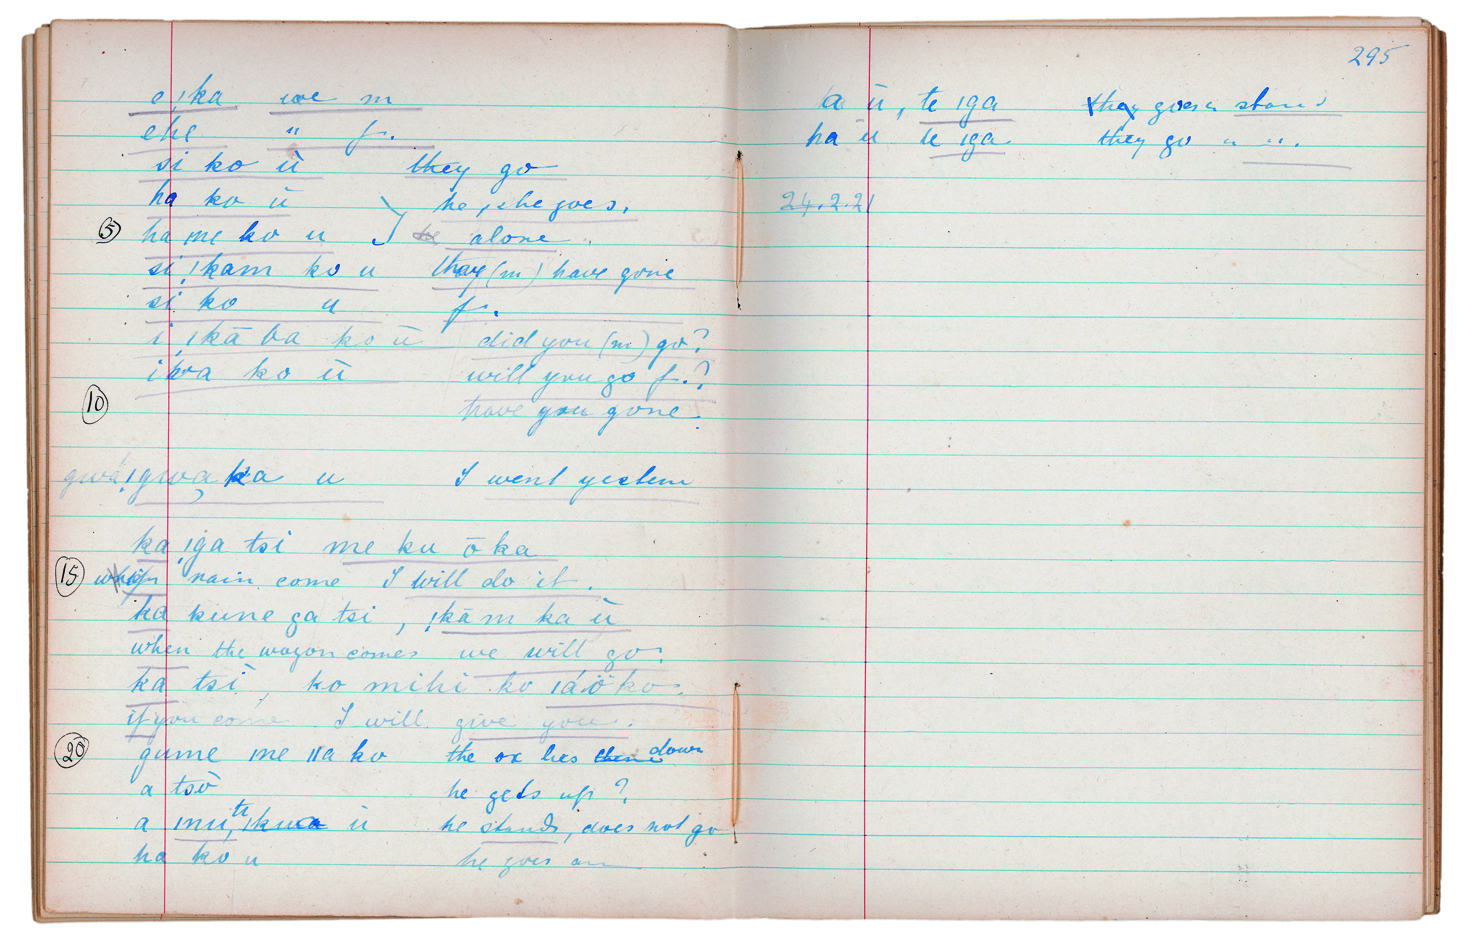 e ǀka we m
ehe " f.
si ko ū they go
ha ko ū he, she goes.
5 ha me ko u alone.
si ǃkam ko u they (m) have gone
si ko u f.
i ǀkā ba ko ū did you (m) go?
i wa ko ū will you go f.?
10 have you gone.
gwá ǃgwa ka u I went yesterm
ka ǀga tsi me ku ō ka
15 when rain come I will do it.
ka kune ga tsi, ǃkām ka ū
when the wagon comes we will go.
ka tsi, ko mihi ko ǀáö ko.
if you come I will give you.
20 gume me ǁa ko the ox lies down
a tsō he gets up?
a mu, te ǀkwa ū he stands, does not go
ha ko u he goes on
295
a ū, te ǀga they goes u stand
ha ū te ǀga they go " ".
24.2.21